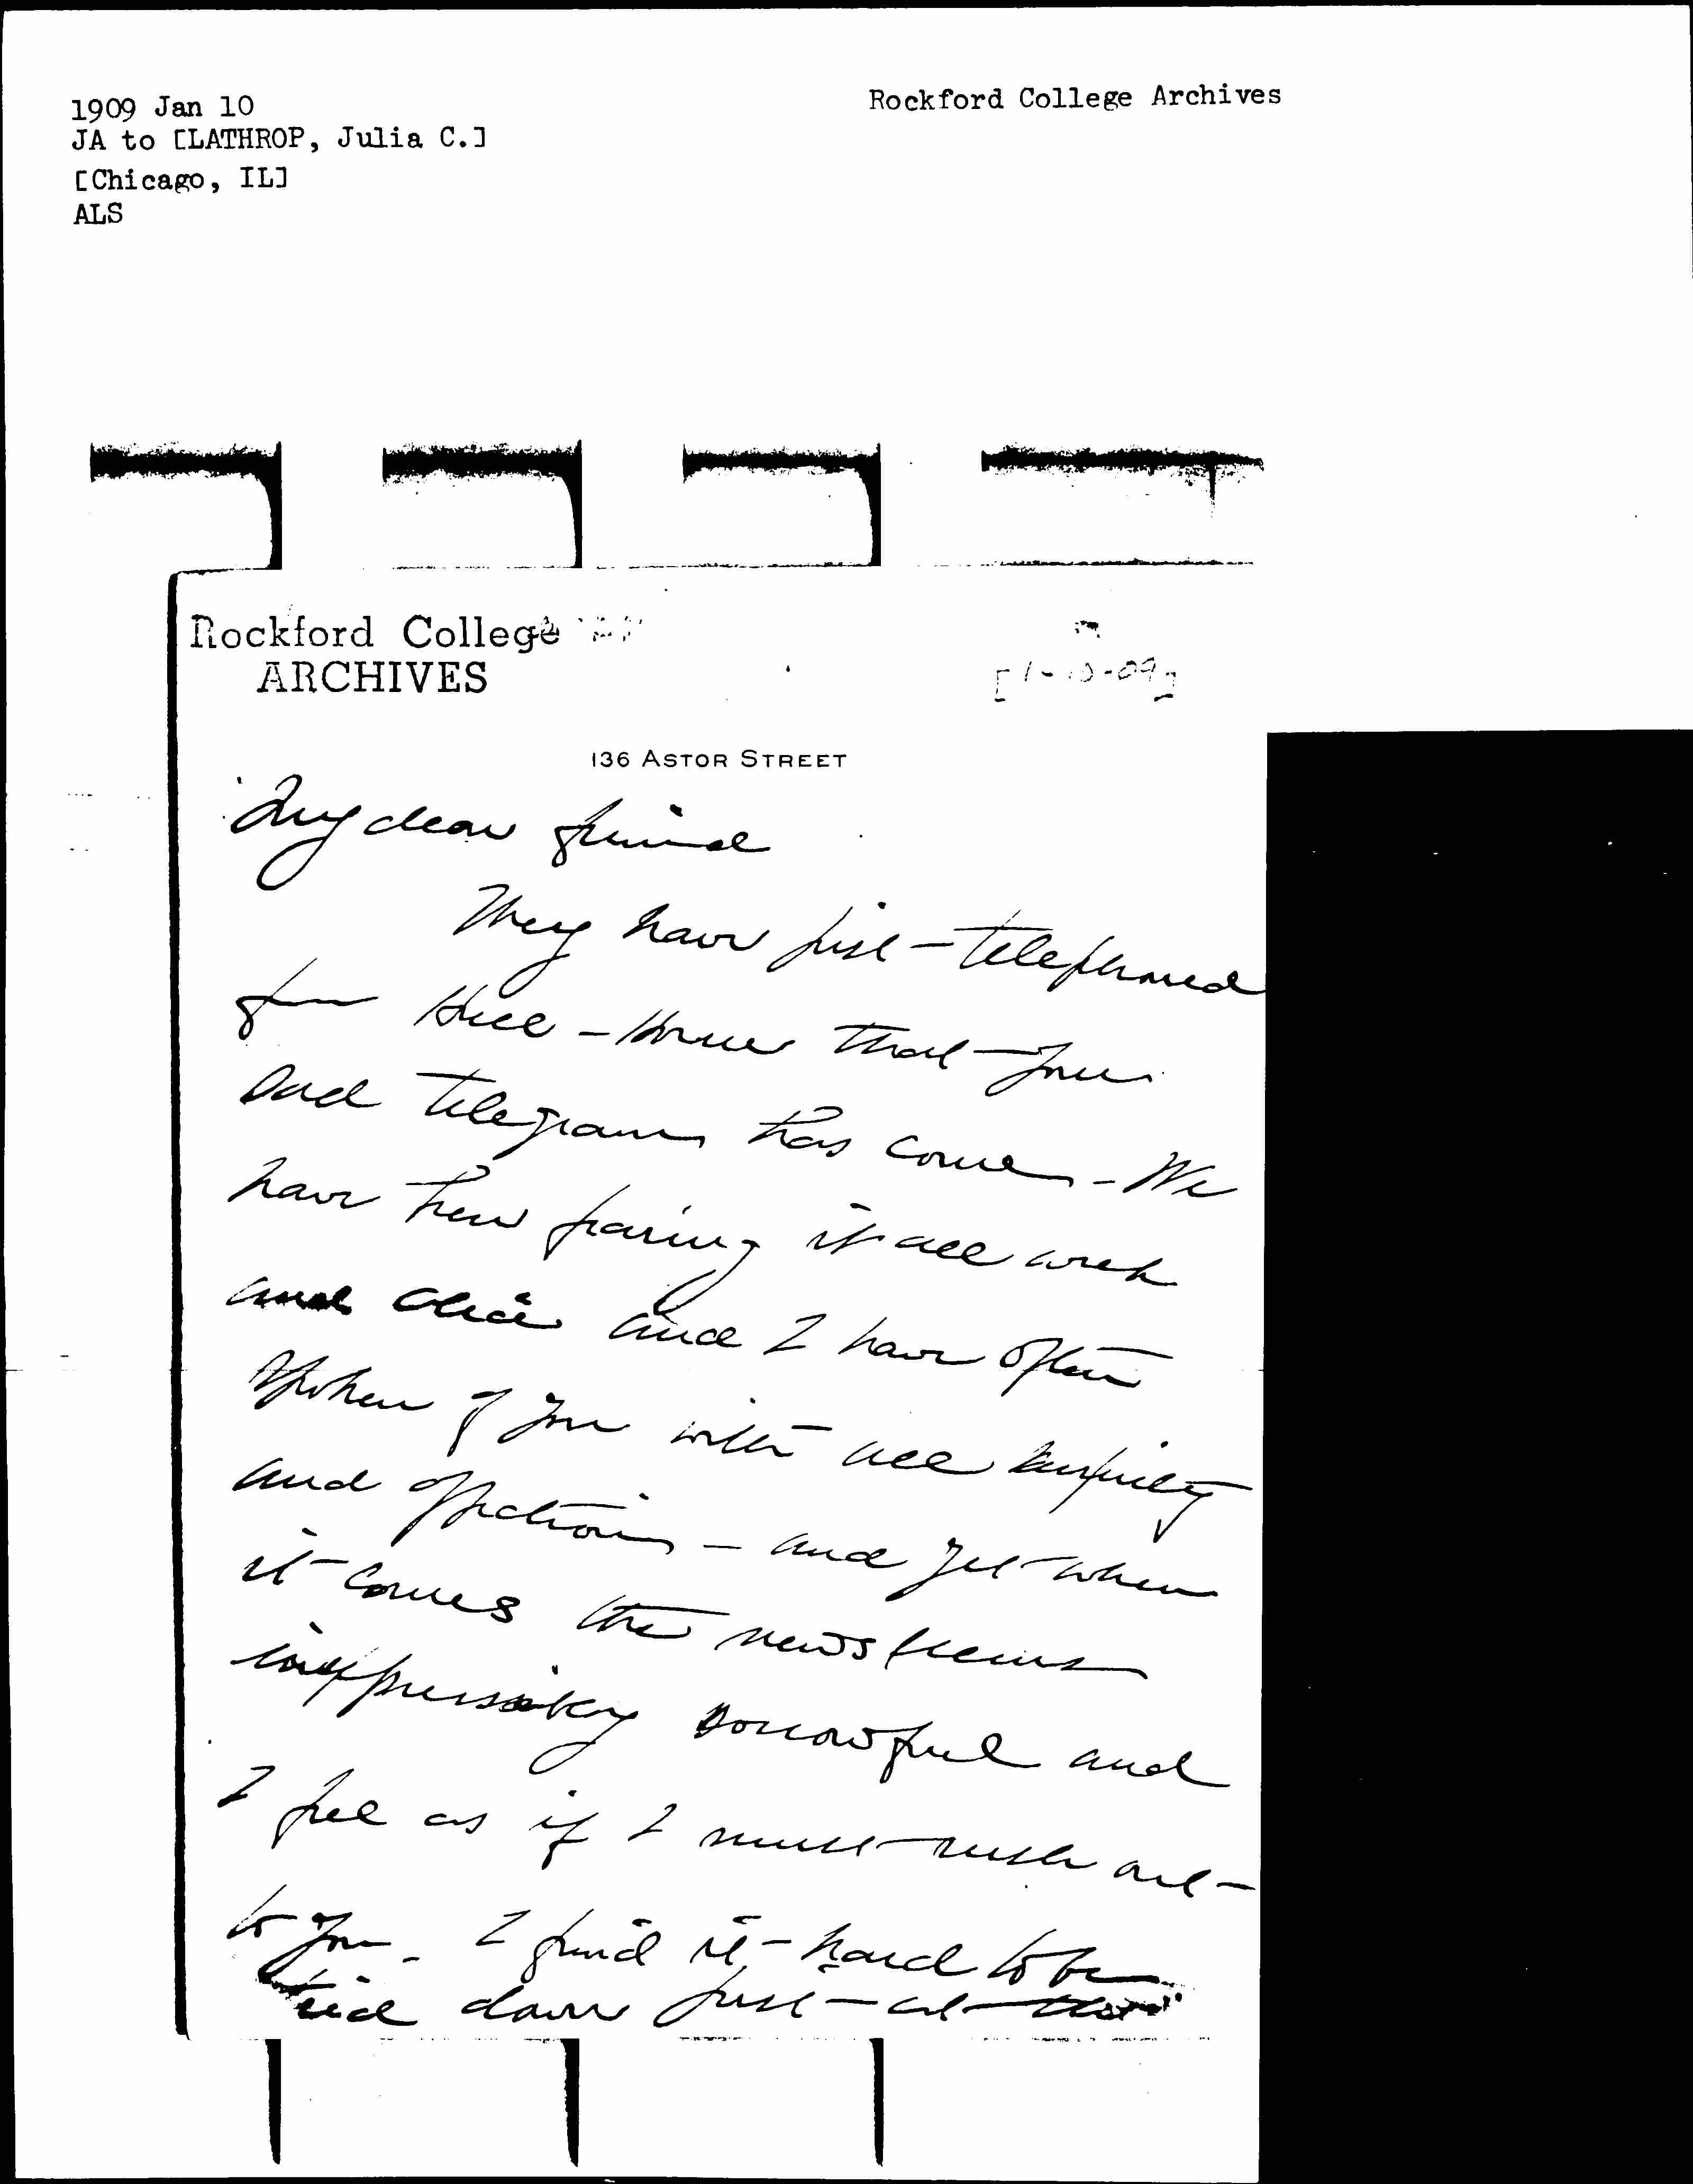 1909 Jan 10
JA to [LATHROP, Julia C.]
[Chicago, IL]
ALS
Rockford College Archives
Rockford College
ARCHIVES
[1-10-09]
136 ASTOR STREET
My dear friend
They have just telephoned
from Hull-House that your
sad telegram has come - We
have been fearing it all week
and Alice and I have often
spoken of you with all sympathy
and affection - and yet when
it comes the news seems
inexpressibly sorrowful and
I feel as if I must rush out
to you. I find it hard to be
tied down just at